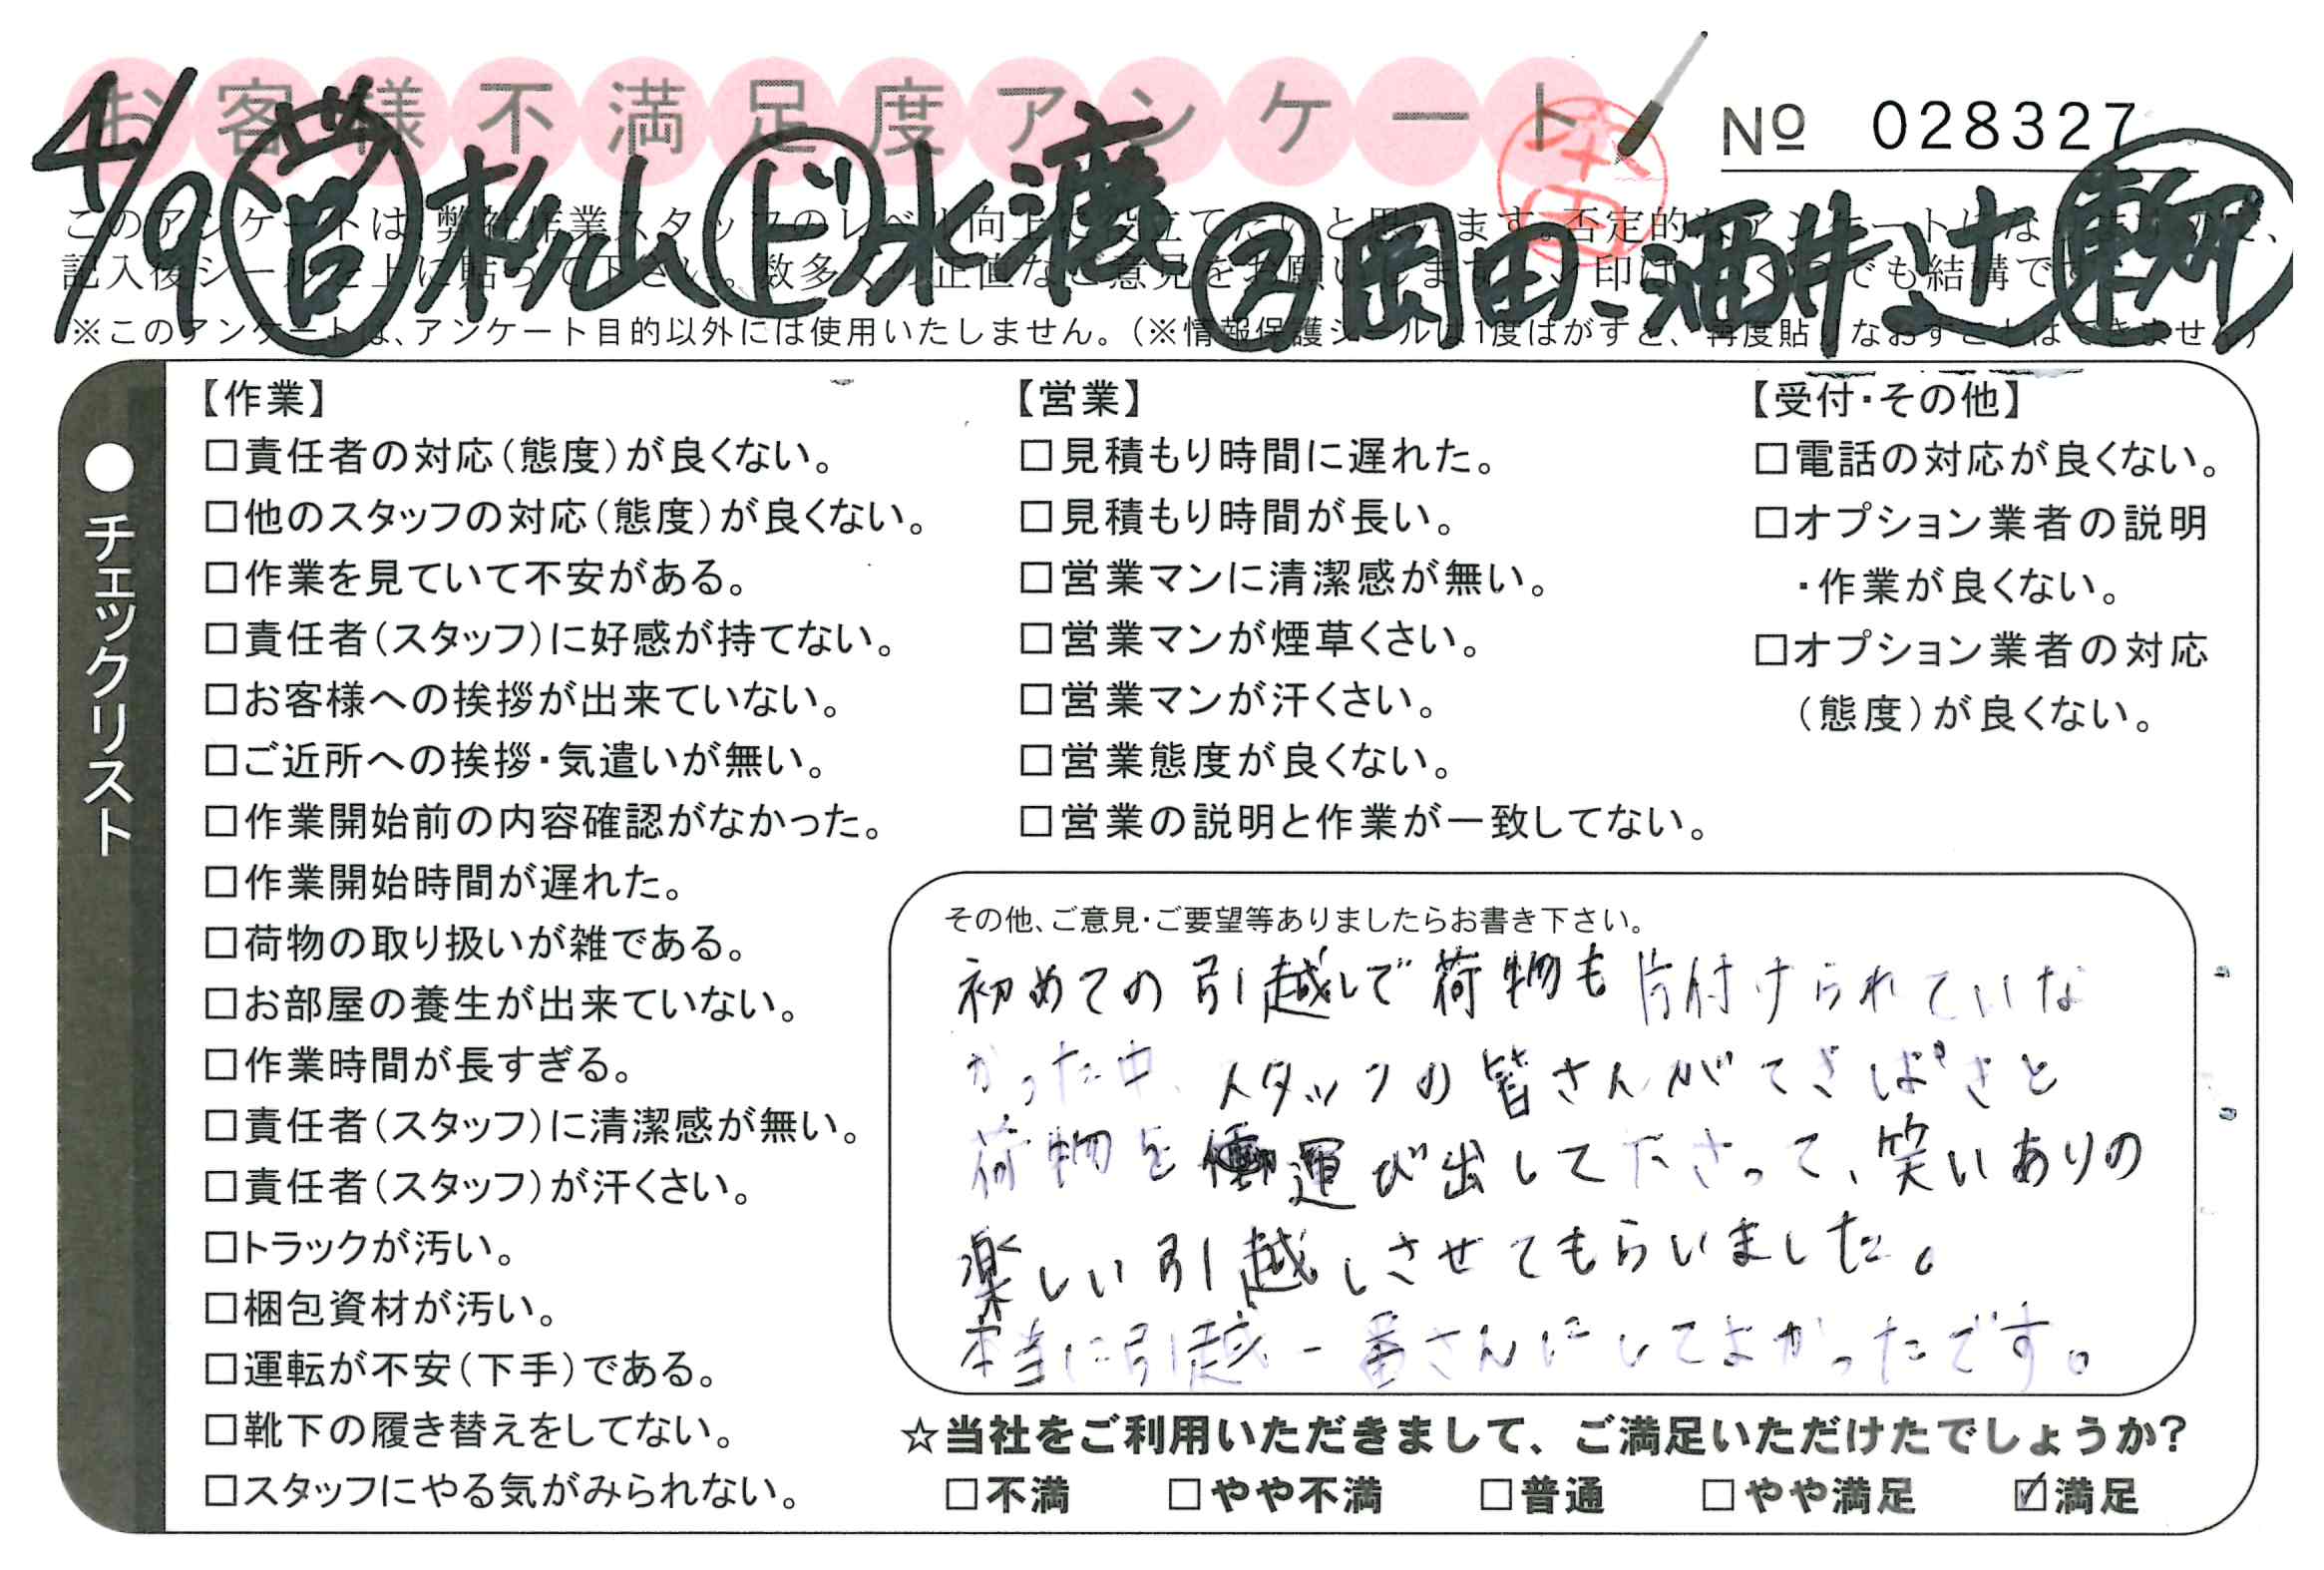 お客様不満足度アンケート
№ 028327
4/9 営 杉山 ド 水漉 ア 岡田 酒井 辻 東郷
このアンケートは、弊社作業スタッフのレベル向上に役立てたいと思います。否定的なアンケートには
記入後シールを上に貼って下さい。数多くの正直なご意見をお願いします。メン印はいくつでも結構です
※このアンケートは、アンケート目的以外には使用いたしません。(※情報保護シールは1度はがすと、再度貼りなおすことはできません)
●チェックリスト
【作業】
□責任者の対応(態度)が良くない。
□他のスタッフの対応(態度)が良くない。
□作業を見ていて不安がある。
□責任者(スタッフ)に好感が持てない。
□お客様への挨拶が出来ていない。
□ご近所への挨拶・気遣いが無い。
□作業開始前の内容確認がなかった。
□作業開始時間が遅れた。
□荷物の取り扱いが雑である。
□お部屋の養生が出来ていない。
□作業時間が長すぎる。
□責任者(スタッフ)に清潔感が無い。
□責任者(スタッフ)が汗くさい。
□トラックが汚い。
□梱包資材が汚い。
□運転が不安(下手)である。
□靴下の履き替えをしてない。
□スタッフにやる気がみられない。
【営業】
□見積もり時間に遅れた。
□見積もり時間が長い。
□営業マンに清潔感が無い。
□営業マンが煙草くさい。
□営業マンが汗くさい。
□営業態度が良くない。
□営業の説明と作業が一致してない。
【受付・その他】
□電話の対応が良くない。
□オプション業者の説明
・作業が良くない。
□オプション業者の対応
(態度)が良くない。
その他、ご意見・ご要望等ありましたらお書き下さい。
初めての引越しで荷物も片付けられていな
かった中、スタッフの皆さんがてきぱきと
荷物を運び出して下さって、笑いありの
楽しい引越しさせてもらいました。
本当に引越一番さんにしてよかったです。
☆当社をご利用いただきまして、ご満足いただけたでしょうか?
□不満 □やや不満 □普通 □やや満足 ☑満足